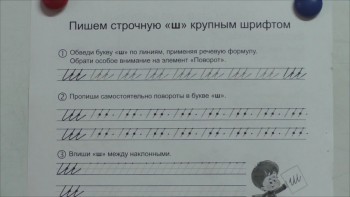 Пишем строчную «ш» крупным шрифтом
1 Обведи букву «ш» по линиям, применяя речевую формулу.
Обрати особое внимание на элемент «Поворот».
ш ш ш ш ш ш ш ш ш ш
2 Пропиши самостоятельно повороты в букве «ш».
ш
ш
3 Впиши «ш» между наклонными.
ш
ш
ш